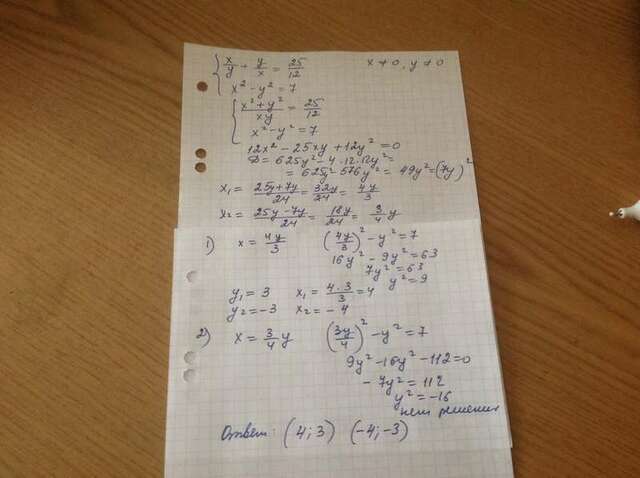 { x/y + y/x = 25/12    x ≠ 0, y ≠ 0
x² - y² = 7
{ (x² + y²)/xy = 25/12
x² - y² = 7
12x² - 25xy + 12y² = 0
D = 625y² - 4·12·12y² =
= 625y² - 576y² = 49y² = (7y)²
x₁ = (25y + 7y)/24 = 32y/24 = 4y/3
x₂ = (25y - 7y)/24 = 18y/24 = 3/4 y
1) x = 4y/3    (4y/3)² - y² = 7
16y² - 9y² = 63
7y² = 63
y² = 9
y₁ = 3    x₁ = 4·3/3 = 4
y₂ = -3    x₂ = -4
2) x = 3/4 y    (3y/4)² - y² = 7
9y² - 16y² - 112 = 0
- 7y² = 112
y² = -16
нет решения
Ответ: (4; 3) (-4; -3)